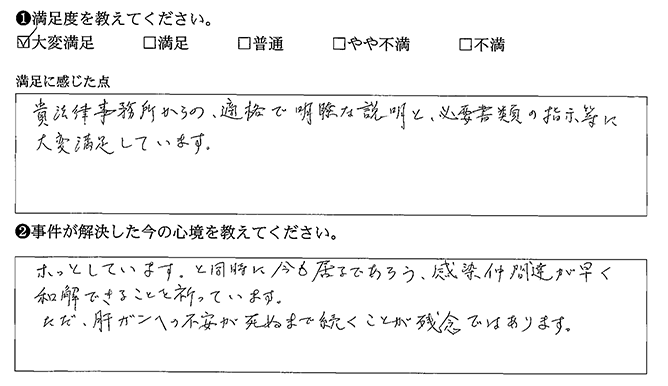 ❶満足度を教えてください。
☑大変満足 □満足 □普通 □やや不満 □不満
満足に感じた点
貴法律事務所からの、適格で明瞭な説明と、必要書類の指示等に
大変満足しています。
❷事件が解決した今の心境を教えてください。
ホッとしています。と同時に今も居るであろう、感染仲間達が早く
和解できることを祈っています。
ただ、肝ガンへの不安が死ぬまで続くことが残念ではあります。